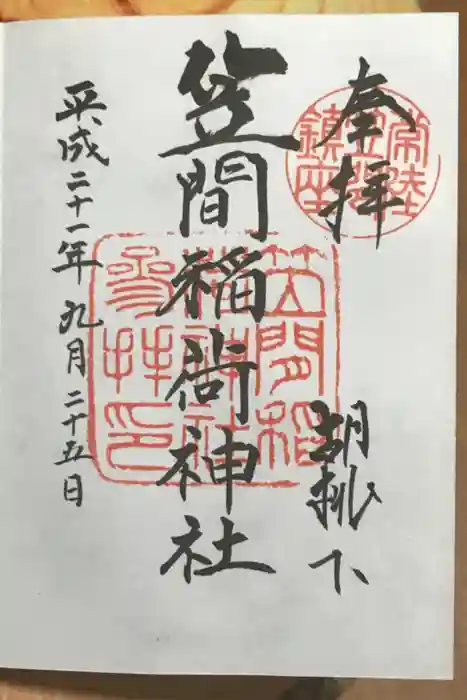 奉拝
胡桃下
常陸
笠間
鎮座
笠間稲荷神社
笠間稲
荷神社
参拝印
平成二十一年九月二十五日